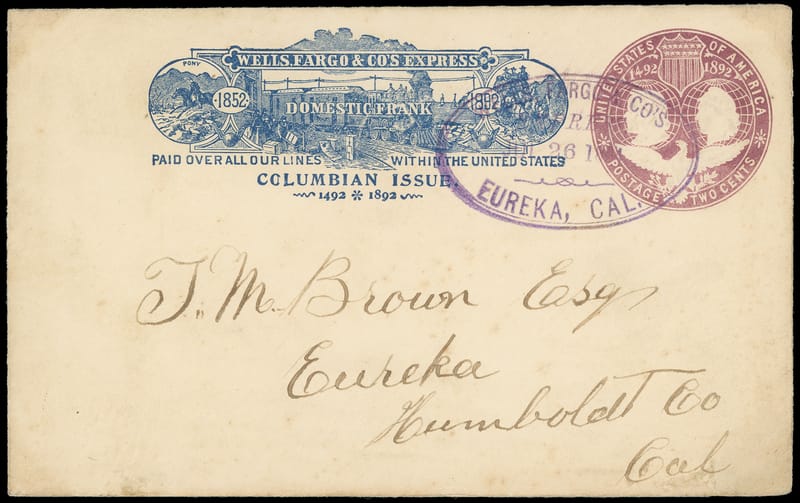 WELLS, FARGO & CO'S EXPRESS
PONY
1852
DOMESTIC FRANK
1892
PAID OVER ALL OUR LINES WITHIN THE UNITED STATES
COLUMBIAN ISSUE.
1492 ※ 1892
UNITED STATES OF AMERICA
1492 1892
POSTAGE TWO CENTS
FARGO CO'S
26 1
EUREKA, CAL.
T. M. Brown Esq
Eureka
Humboldt Co
Cal